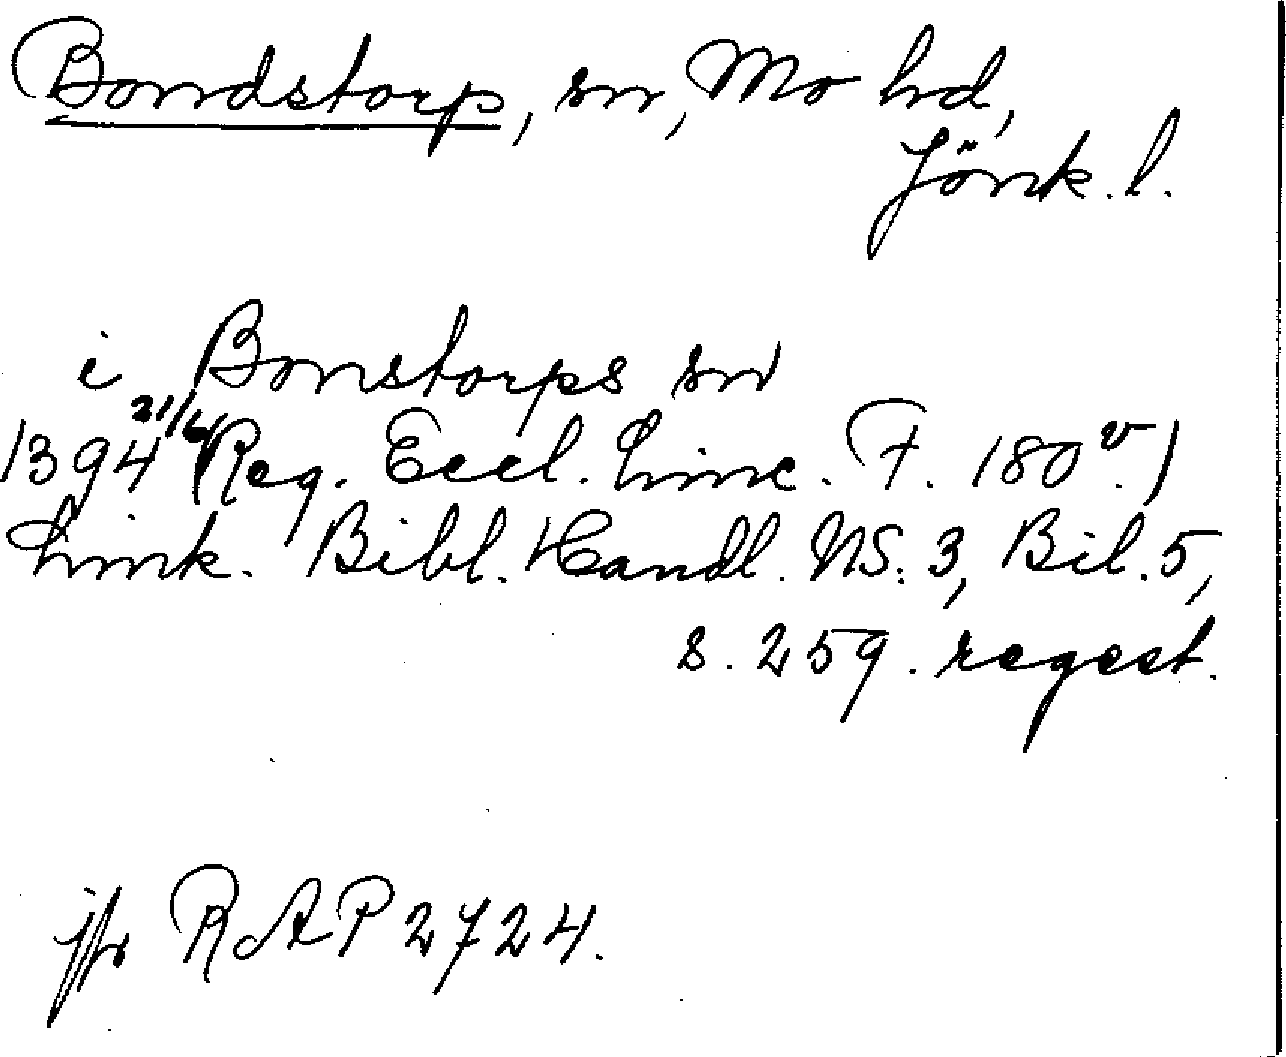 Bondstorp, sn, Mo hd,
Jönk. l.
i Bonstorps sn
1394 21/6 (Reg. Eccl. Linc. F. 180 v.)
Link. Bibl. Handl. NS. 3, Bil. 5,
s. 259. regest.
jfr RAP 2724.